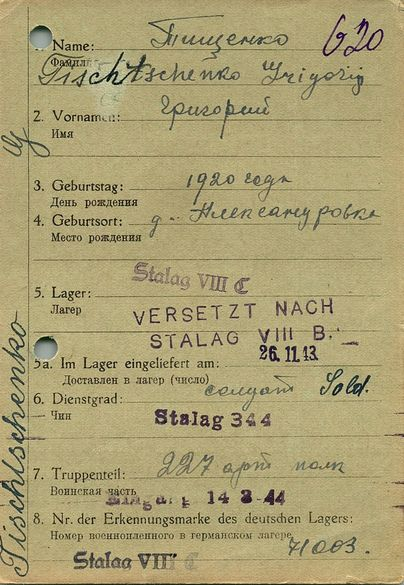 Name: Тищенко 620
Фамилия
Tischtschenko Grigorij
2. Vornamen: Григорий
Имя
3. Geburtstag: 1920 года
День рождения
4. Geburtsort: д. Александровка
Место рождения
Stalag VIII C
5. Lager:
Лагерь
VERSETZT NACH
STALAG VIII B.
26.11.43.
5a. Im Lager eingeliefert am:
Доставлен в лагерь (число)
6. Dienstgrad: солдат Sold.
Чин
Stalag 344
7. Truppenteil: 227 арт полк
Воинская часть
Eingang 14 3 44
8. Nr. der Erkennungsmarke des deutschen Lagers:
Номер военнопленного в германском лагере
71003.
Stalag VIII C
Tischtschenko G